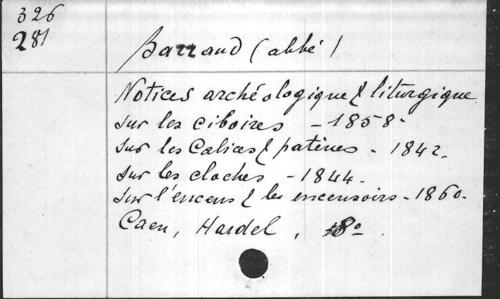 326
281
Barraud (abbé)
Notices archéologique & liturgique
sur les ciboires - 1858.
sur les Calices & patènes - 1842.
sur les cloches - 1844.
sur l'encens & les encensoirs - 1860.
Caen, Hardel, 8º.